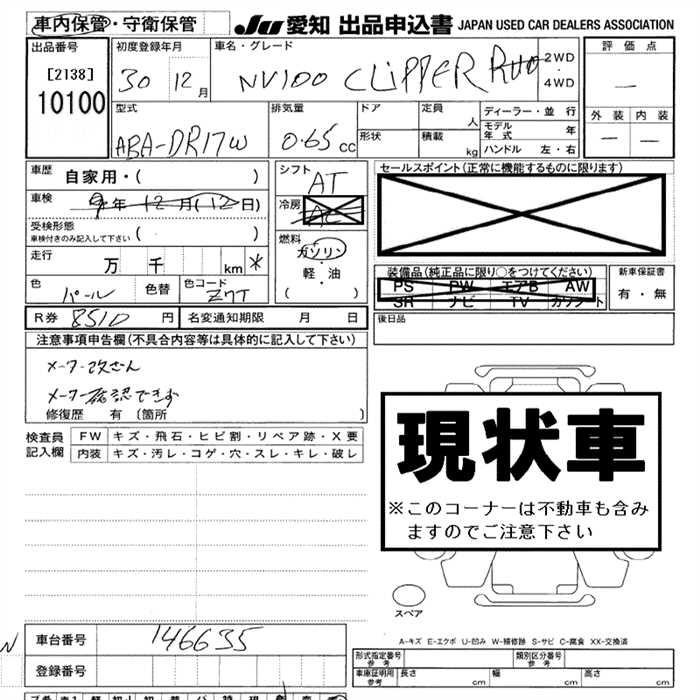 車内保管・守衛保管
JU 愛知 出品申込書 JAPAN USED CAR DEALERS ASSOCIATION
出品番号 初度登録年月 車名・グレード 評価点
[2138] 30 12月 NV100 CLIPPER Rio 2WD・4WD
10100 外装 内装
型式 排気量 ドア 定員 人 ディーラー・並行
ABA-DR17W 0.65cc 形状 積載 kg モデル年式 年
ハンドル 左・右
車歴 自家用・( )
車検 年12月(12日)
受検形態
車検付きのみ記入して下さい ( )
走行 万 千 km *
色 パール 色替 色コード Z7T
シフト AT
冷房 AC
燃料 ガソリン・軽・油 ( )
セールスポイント(正常に機能するものに限ります)
装備品(純正品に限り○をつけてください) 新車保証書
PS PW エアB AW 有・無
SR ナビ TV カワシート
R券 8510円 名変通知期限 月 日
後日品
注意事項申告欄(不具合内容等は具体的に記入して下さい)
メーター改ざん
メーター確認できず
修復歴 有 〔箇所 〕
検査員記入欄 FW キズ・飛石・ヒビ割・リペア跡・X要
内装 キズ・汚レ・コゲ・穴・スレ・キレ・破レ
現状車
※このコーナーは不動車も含み
ますのでご注意下さい
スペア
A-キズ E-エクボ U-凹み W-補修跡 S-サビ C-腐食 XX-交換済
車台番号 146635
登録番号
形式指定番号 参考 類別区分番号 参考
車庫証明用 参考 長さ cm 幅 cm 高さ cm
N